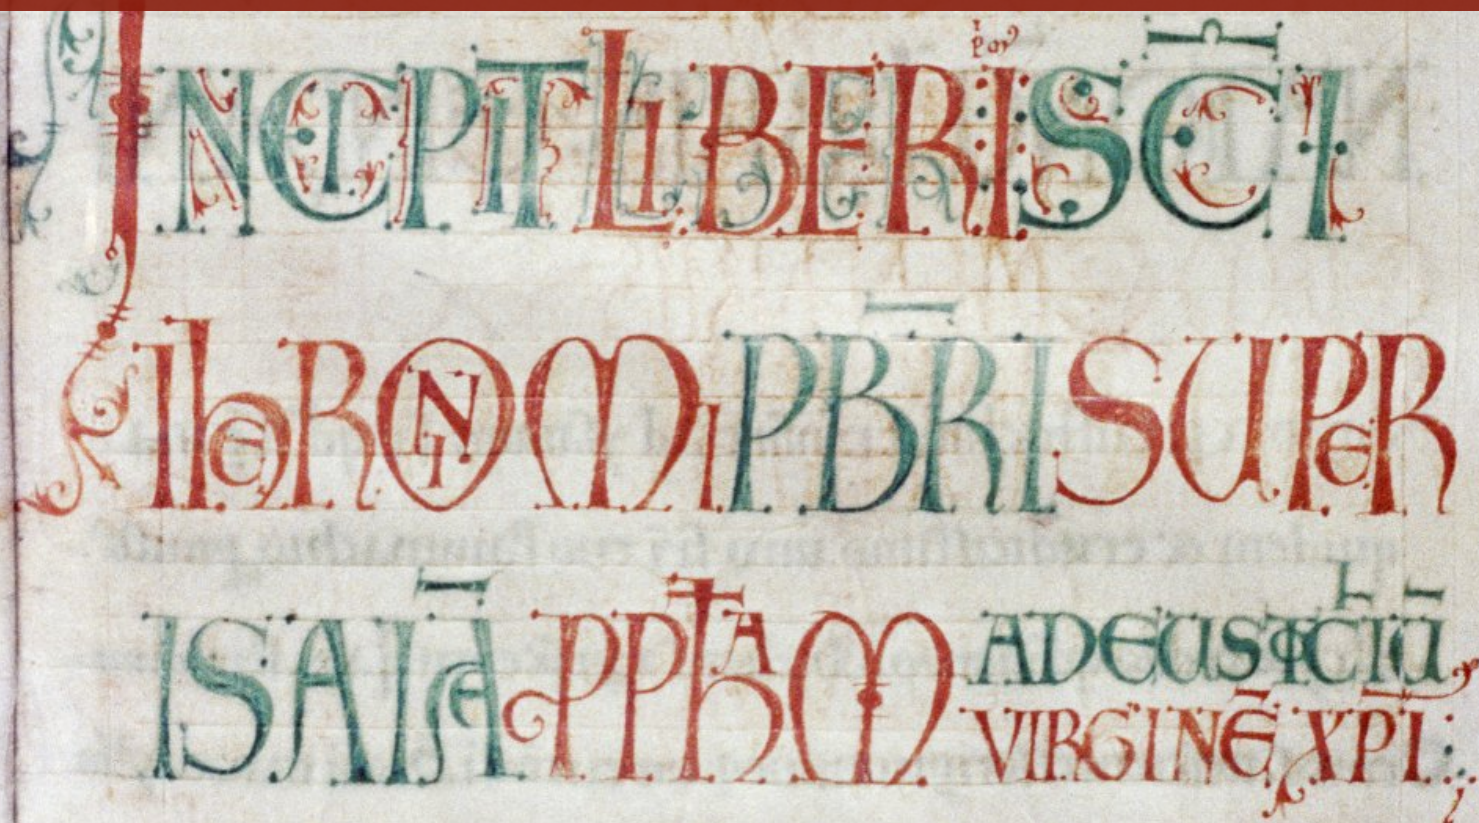 INCIPIT LIBER I SC̄I
IHERONIMI PB̄RI SUPER
ISAIĀ PPHAM AD EUSTOCHIŪ
VIRGINĒ XP̄I